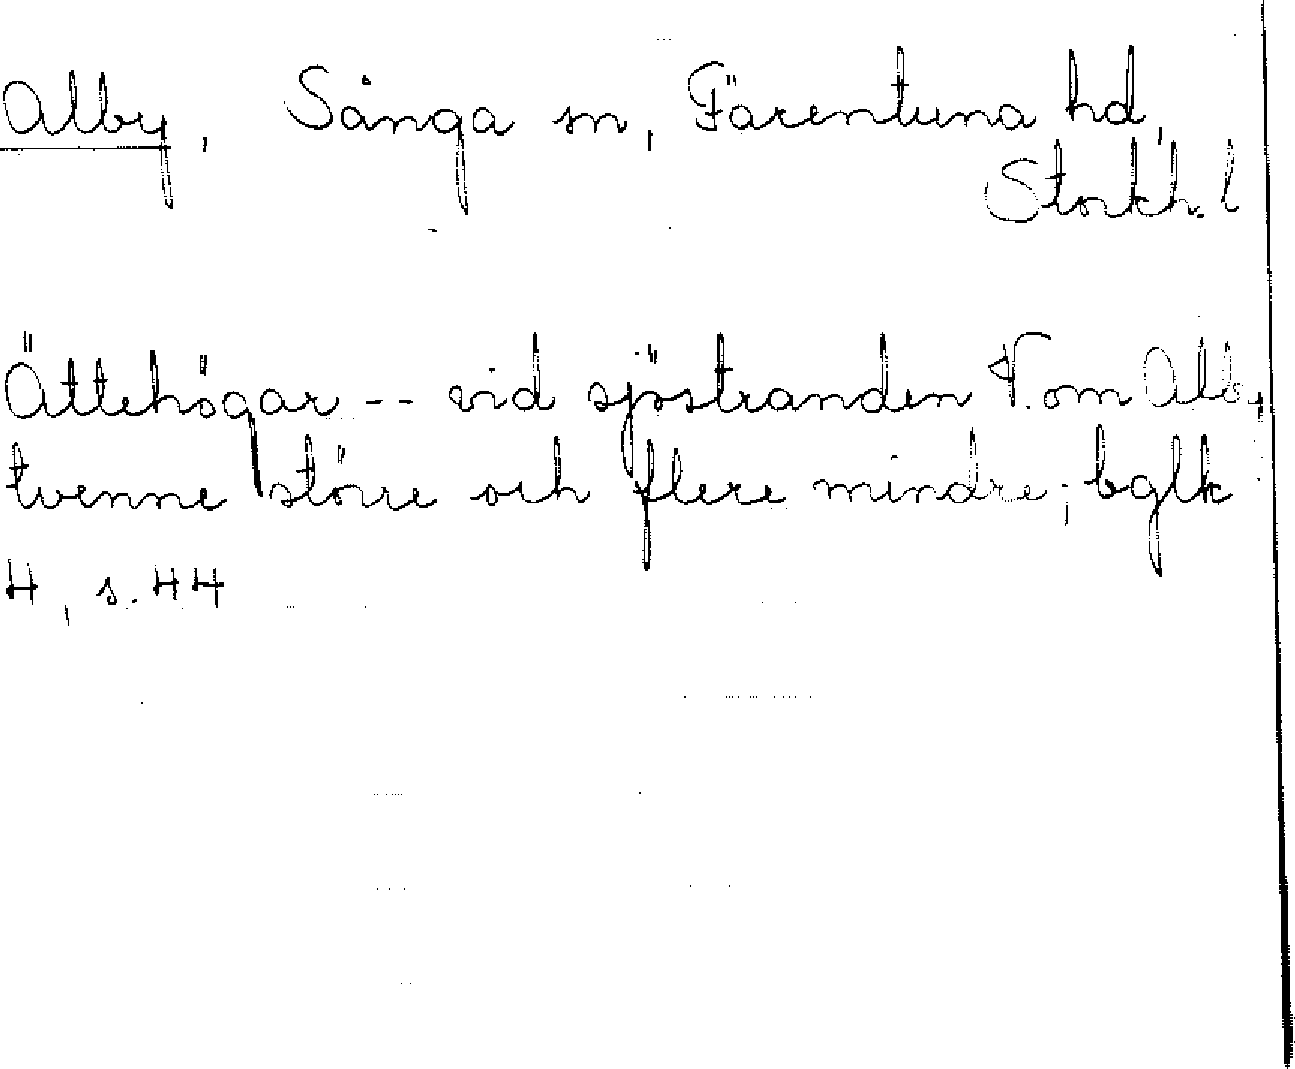 Alby, Sånga sn, Färentuna hd,
Stockh. l
Ättehögar -- vid sjöstranden V. om Alby
tvenne större och flere mindre; bglk
4, s. 44